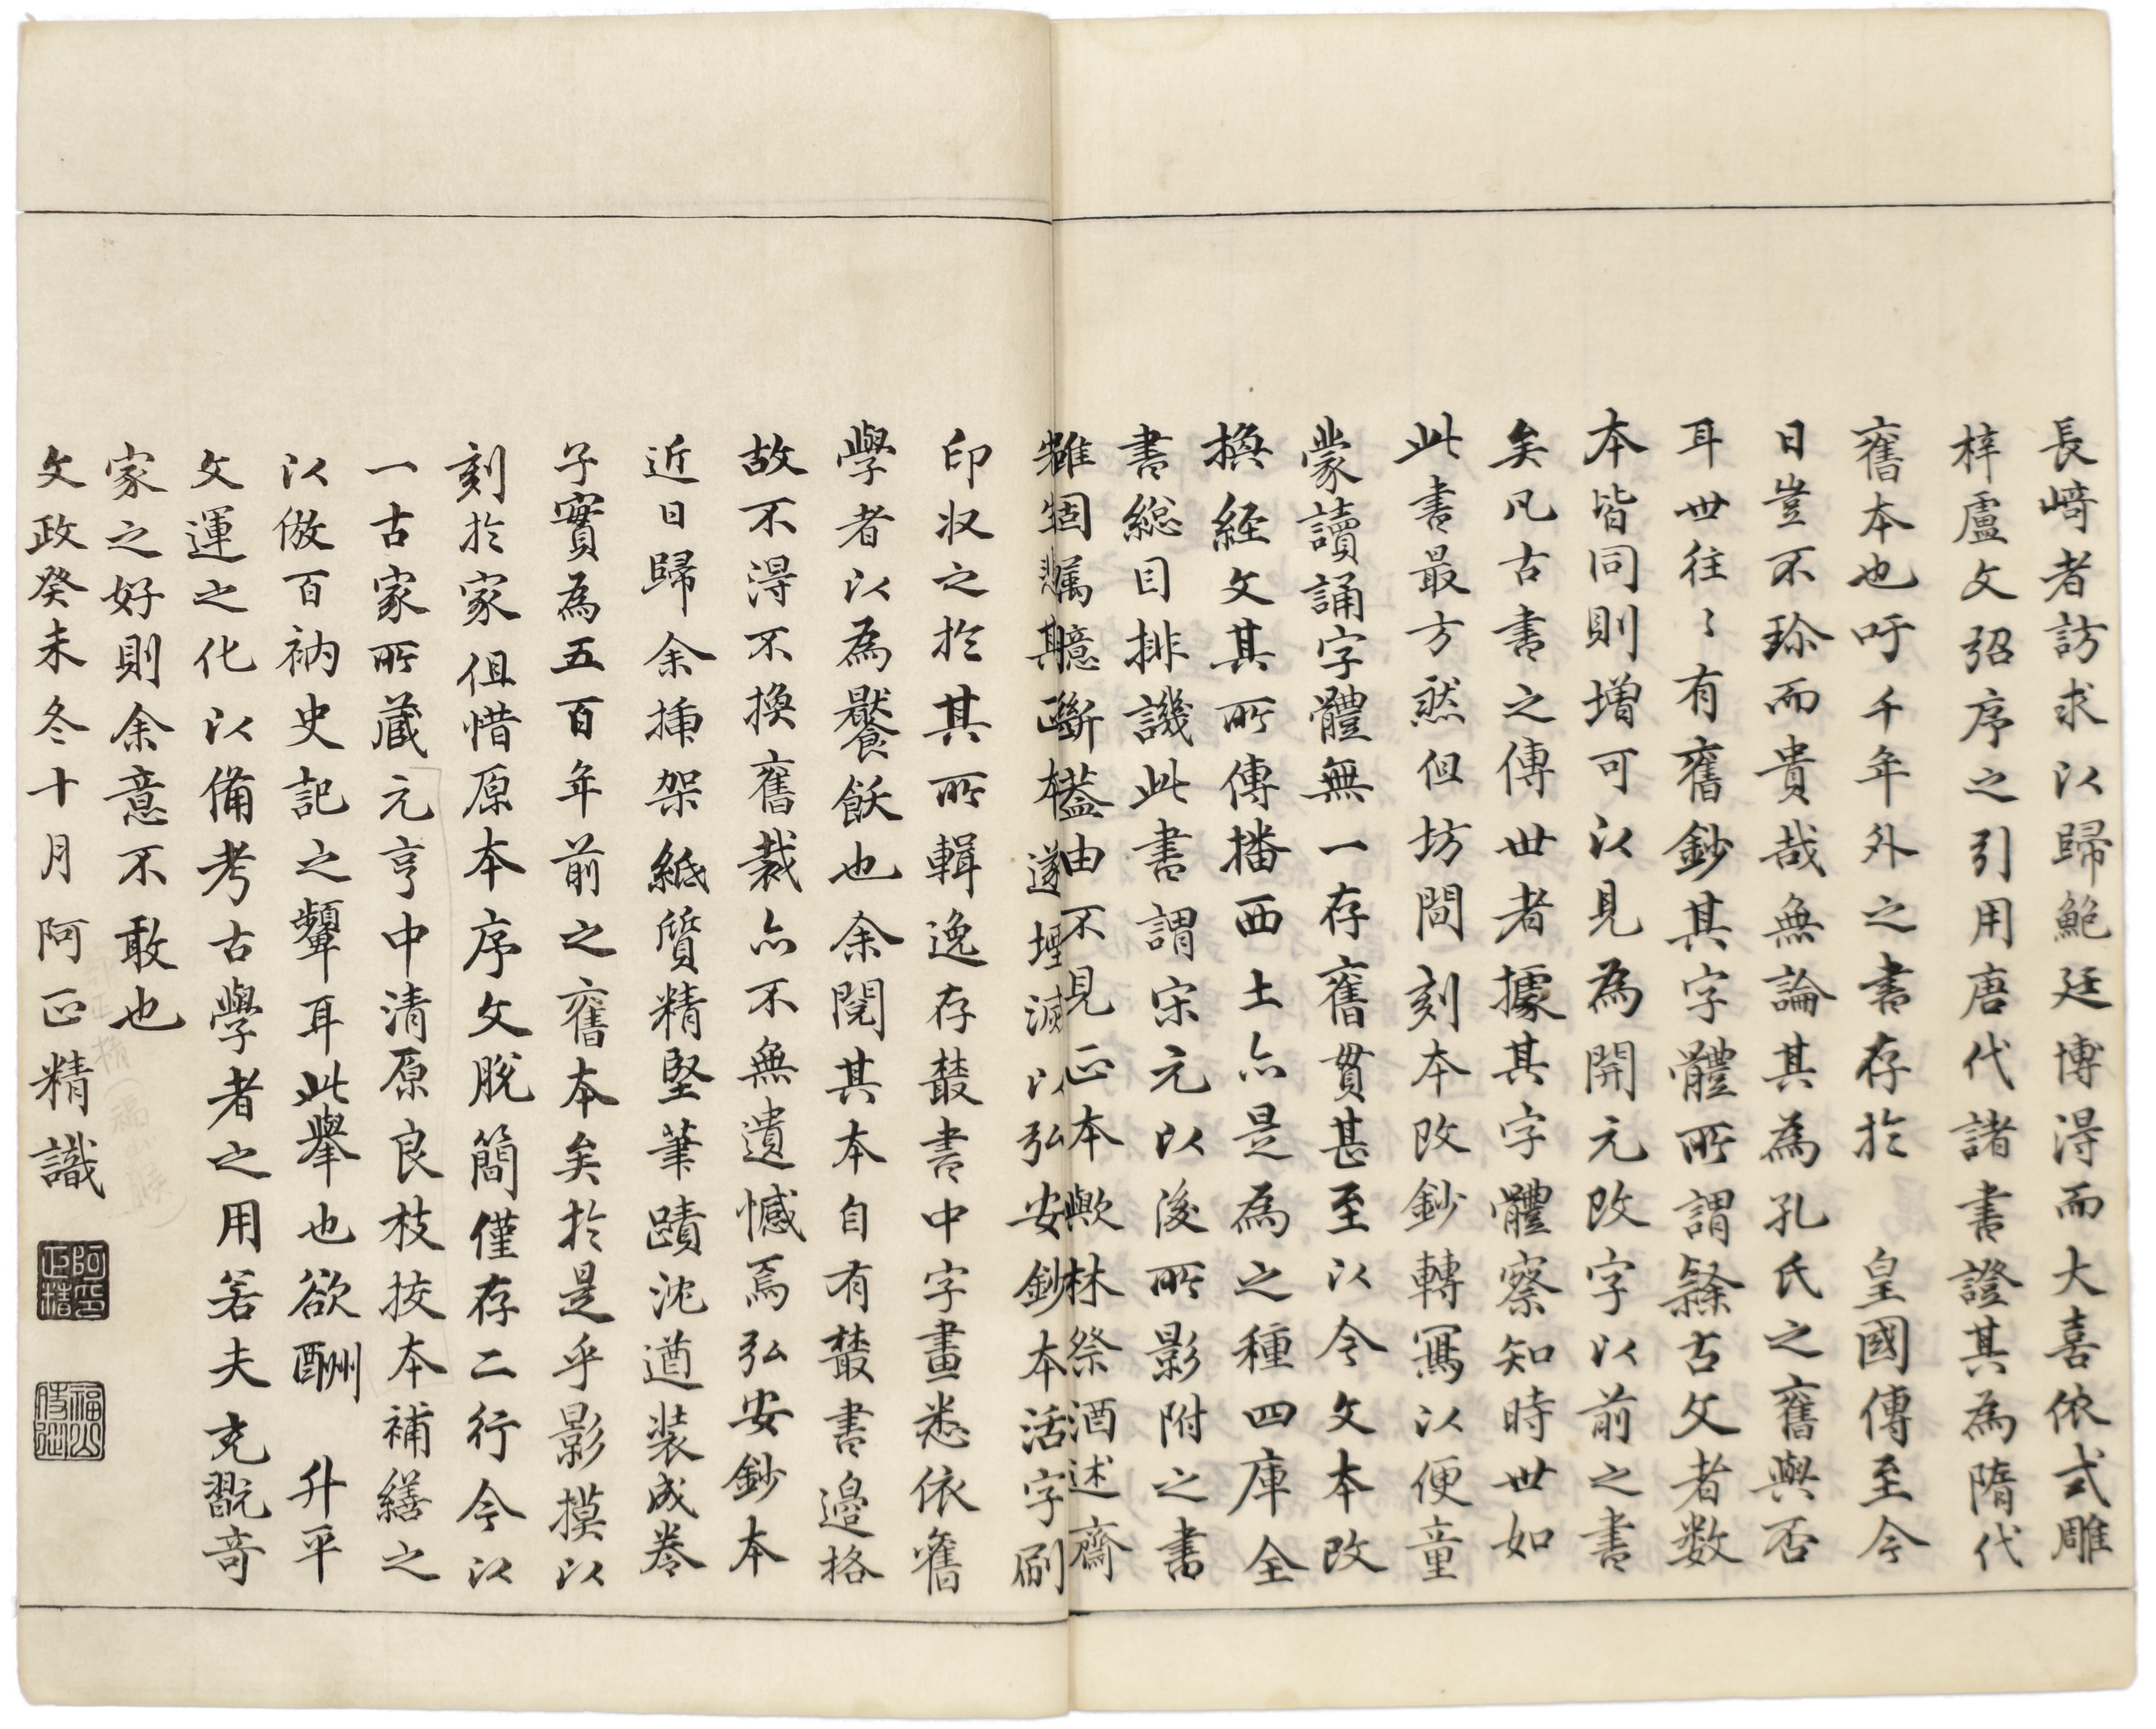 長﨑者訪求以歸鮑廷博淂而大喜依式雕
梓盧文弨序之引用唐代諸書證其為隋代
舊本也吁千年外之書存於　皇國傳至今
日豈不珎而貴哉無論其為孔氏之舊與否
耳世往〻有舊鈔其字體所謂隸古文者数
本皆同則增可以見為開元改字以前之書
矣凡古書之傳世者據其字體察知時世如
此書最方然但坊間刻本改鈔轉寫以便童
蒙讀誦字體無一存舊貫甚至以今文本改
換経文其所傳播西土亦是為之種四庫全
書総目排譏此書謂宋元以後所影附之書
雖固屬臆斷葢由不見正本歟林祭酒述齋
其正本遂堙滅以弘安鈔本活字刷
印收之於其所輯逸存叢書中字畫悉依舊
學者以為饜飫也余閱其本自有叢書邉格
故不淂不換舊裁亦不無遺憾焉弘安鈔本
近日歸余揷架紙質精堅筆蹟沈遒装成巻
子實為五百年前之舊本矣於是乎影摸以
刻於家但惜原本序文脫簡僅存二行今以
一古家所藏元亨中清原良枝挍本補繕之
以倣百衲史記之顰耳此擧也欲酬　升平
文運之化以備考古學者之用若夫充翫奇
家之好則余意不敢也
文政癸未冬十月阿正精識
阿部正精
福山